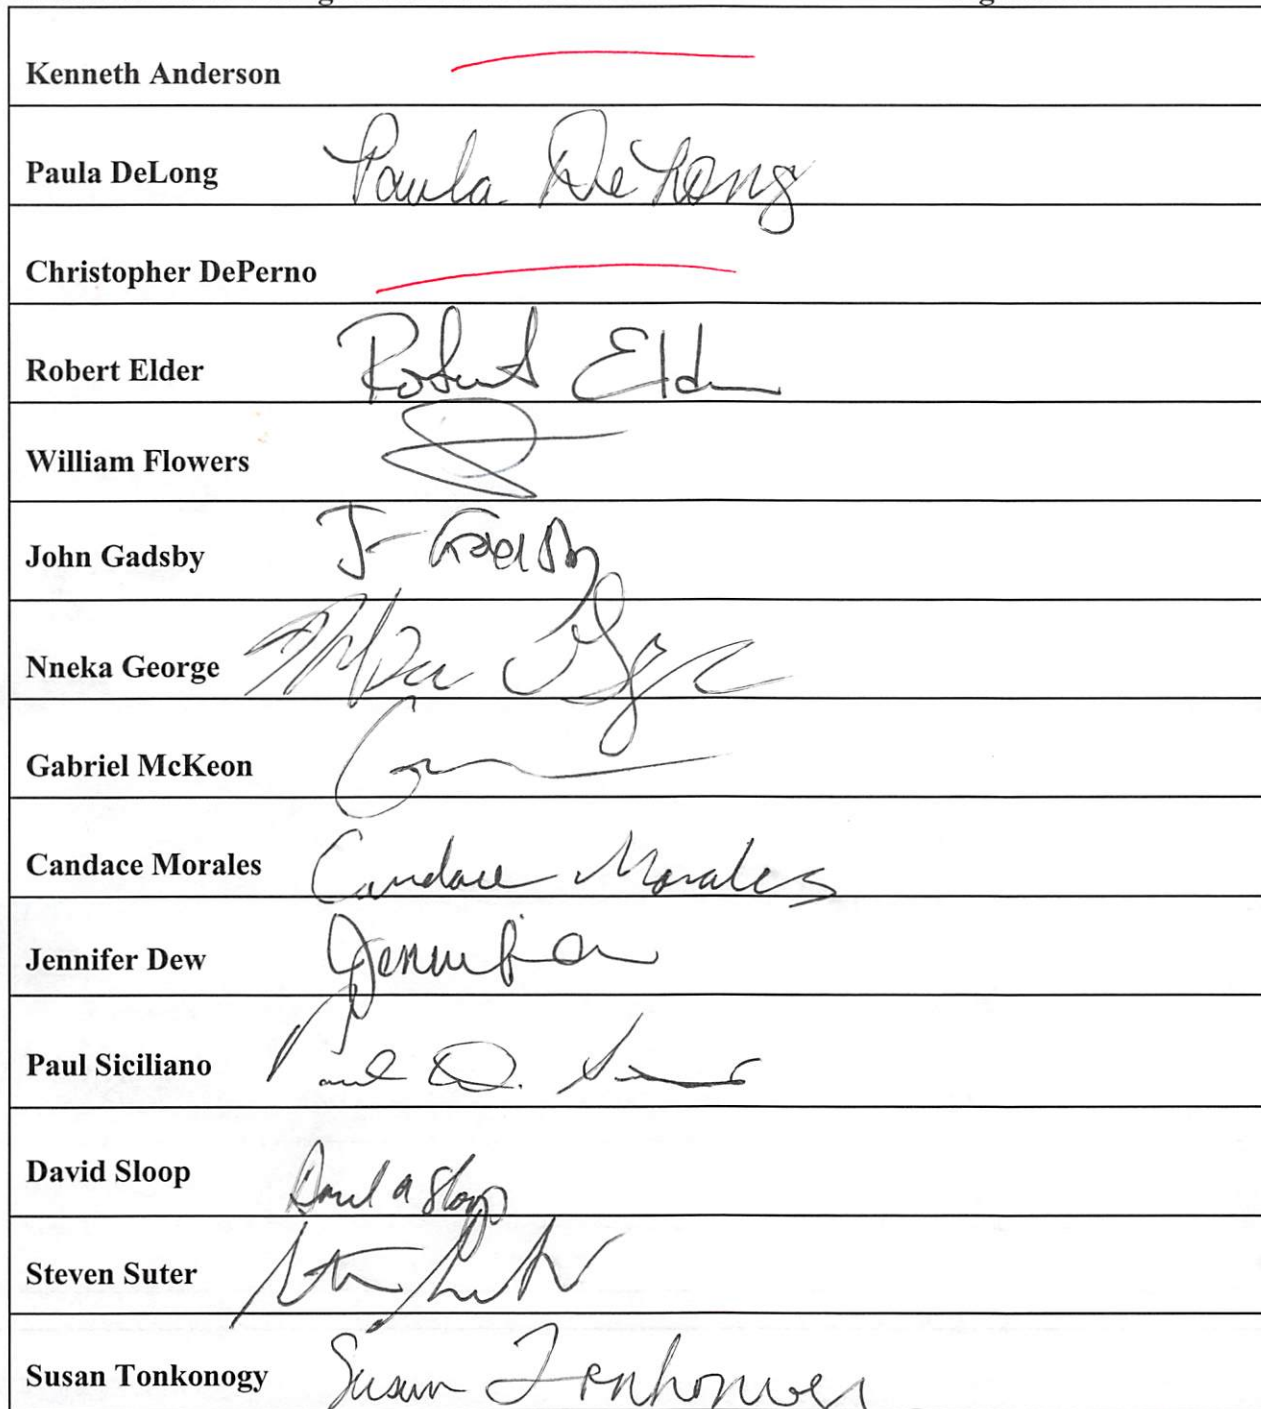 Kenneth Anderson
Paula DeLong Paula DeLong
Christopher DePerno
Robert Elder Robert Elder
William Flowers
John Gadsby J Gadsby
Nneka George
Gabriel McKeon
Candace Morales Candace Morales
Jennifer Dew Jennifer
Paul Siciliano Paul D.
David Sloop David A Sloop
Steven Suter
Susan Tonkonogy Susan